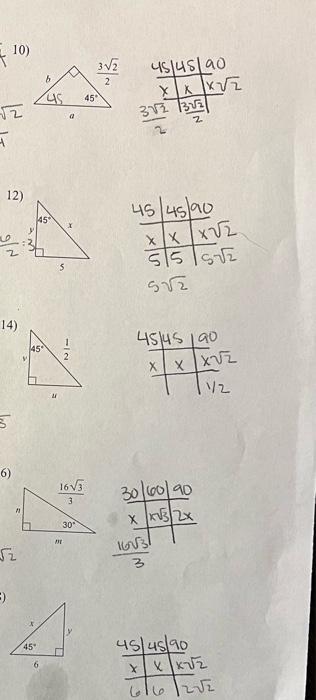 10)
b
3√2
2
45
45°
a
45|45|90
x x x√2
3√2 3√2
2 2
√2
12)
45°
y
x
5
2 = 3
45|45|90
x x x√2
5 5 5√2
5√2
14)
45°
v
1
2
u
45|45|90
x x x√2
1/2
6)
16√3
3
n
30°
m
√2
30|60|90
x x√3 2x
16√3
3
)
x
y
45°
6
45|45|90
x x x√2
6 6 2√2